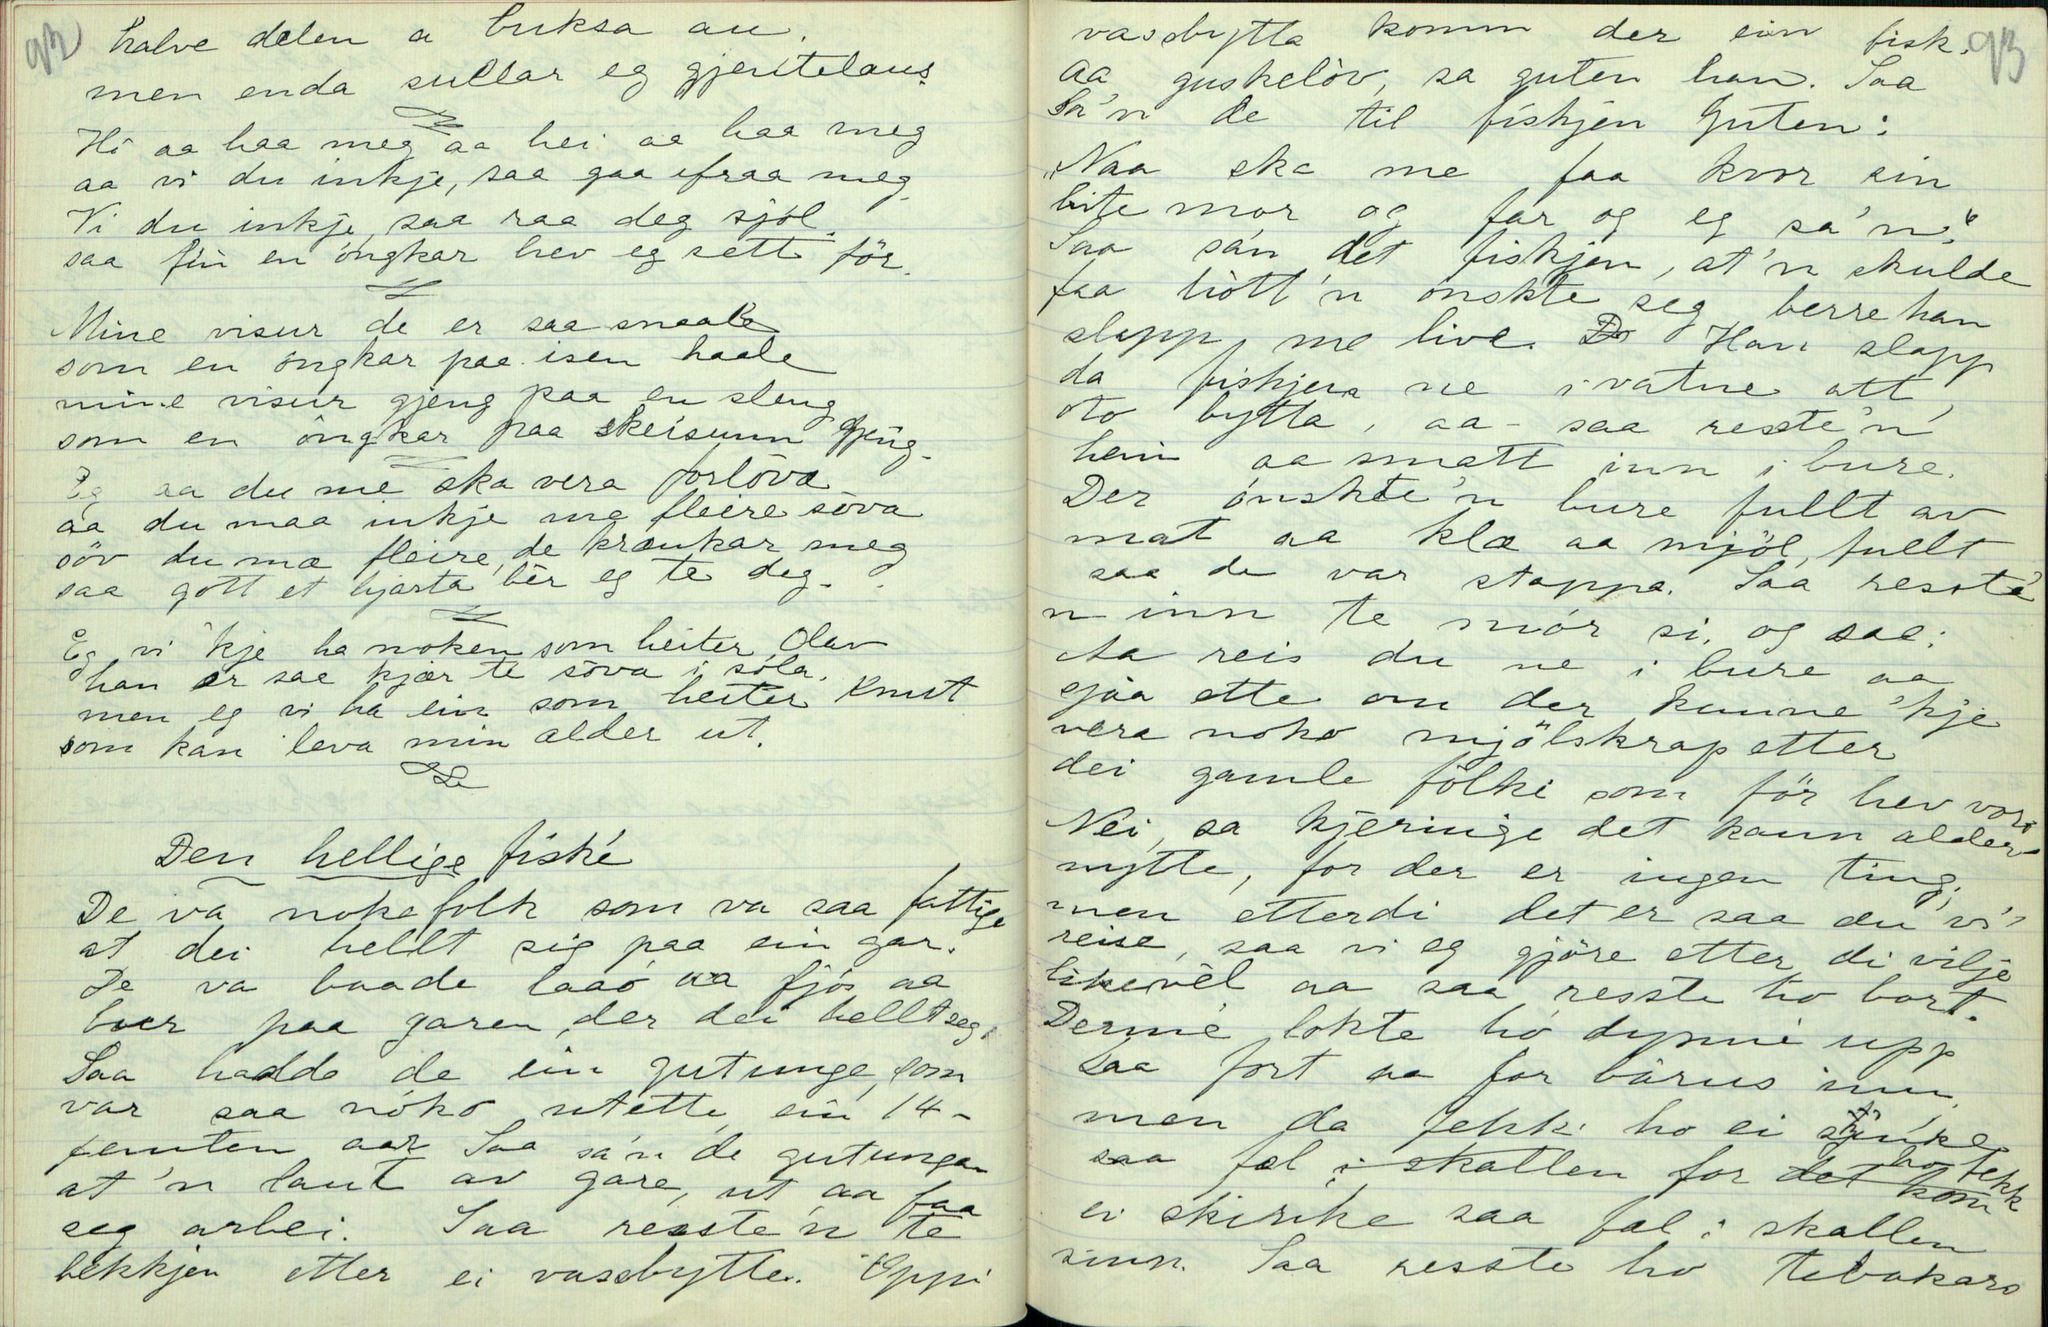 92
halve delen a buksa au.
men enda sullar eg gjentelaus.
Hi aa haa meg aa hei aa haa meg
aa vi du inkje, saa gaa ifraa meg.
Vi du inkje, saa raa deg sjöl.
saa fin en ongkar hev eg sett för.
Mine visur de er saa smaale
som en ongkar paa isen haale
mine visur gjeng paa en sleng
som en ongkar paa skeisunn gjeng.
Eg aa du me ska vera forlöva
aa du maa inkje ma fleire söva
söv du ma fleire, de krænkar meg
saa gott et hjarta bér eg te deg.
Eg vi 'kje ha noken som heiter Olav
han er saa kjær te söva i sola.
men eg vi ha ein som heiter Knut
som kan leva min alder ut.
Den hellige fiské
De va noke folk som va saa fattige
at dei hellt sig paa ein gar.
De va baade laao aa fjos aa
buer paa garen der dei hellt seg.
Saa hadde de ein gutunge, som
var saa noko utette ein 14-
femten aar. Saa sa'n de gutungen
at 'n laut av gare, ut aa faa
seg arbei. Saa resste'n te
bekkjen etter ei vassbytte. Oppi
93
vassbytta komm der ein fisk.
Aa, guskelov, sa guten han. Saa
sa'n de til fiskjen guten:
Naa ska me faa kvor ein
bite mor og far og eg sa'n.
Saa sa'n det fiskjen, at'n skulde
faa hott'n onskte seg berre han
slapp me live. Han slapp
da fiskjen ne i vatne att
oto bytta, aa saa resste'n
heim aa smatt inn i bure.
Der onskte'n bure fullt av
mat aa klæ aa mjöl, fullt
saa de var stappa. Saa resste'
n inn te mor si, og sae:
Aa reis du ne i bure aa
sjaa ette om der kunne 'kje
vera noko mjölskrap etter
dei gamle folki som för hev vori
Nei, sa kjeringe det kann alder
nytte, for der er ingen ting,
men etterdi det er saa du vi'
reise, saa vi eg gjöre etter di vilje
likevél aa saa resste ho bort.
Dermé lokte ho dynni upp
saa fort aa for bârus inn,
men da fekk ho ei
saa fæl i skallen for det kom ho fekk
ei skirike saa fæl i skallen
sinn. Saa resste ho tebakars